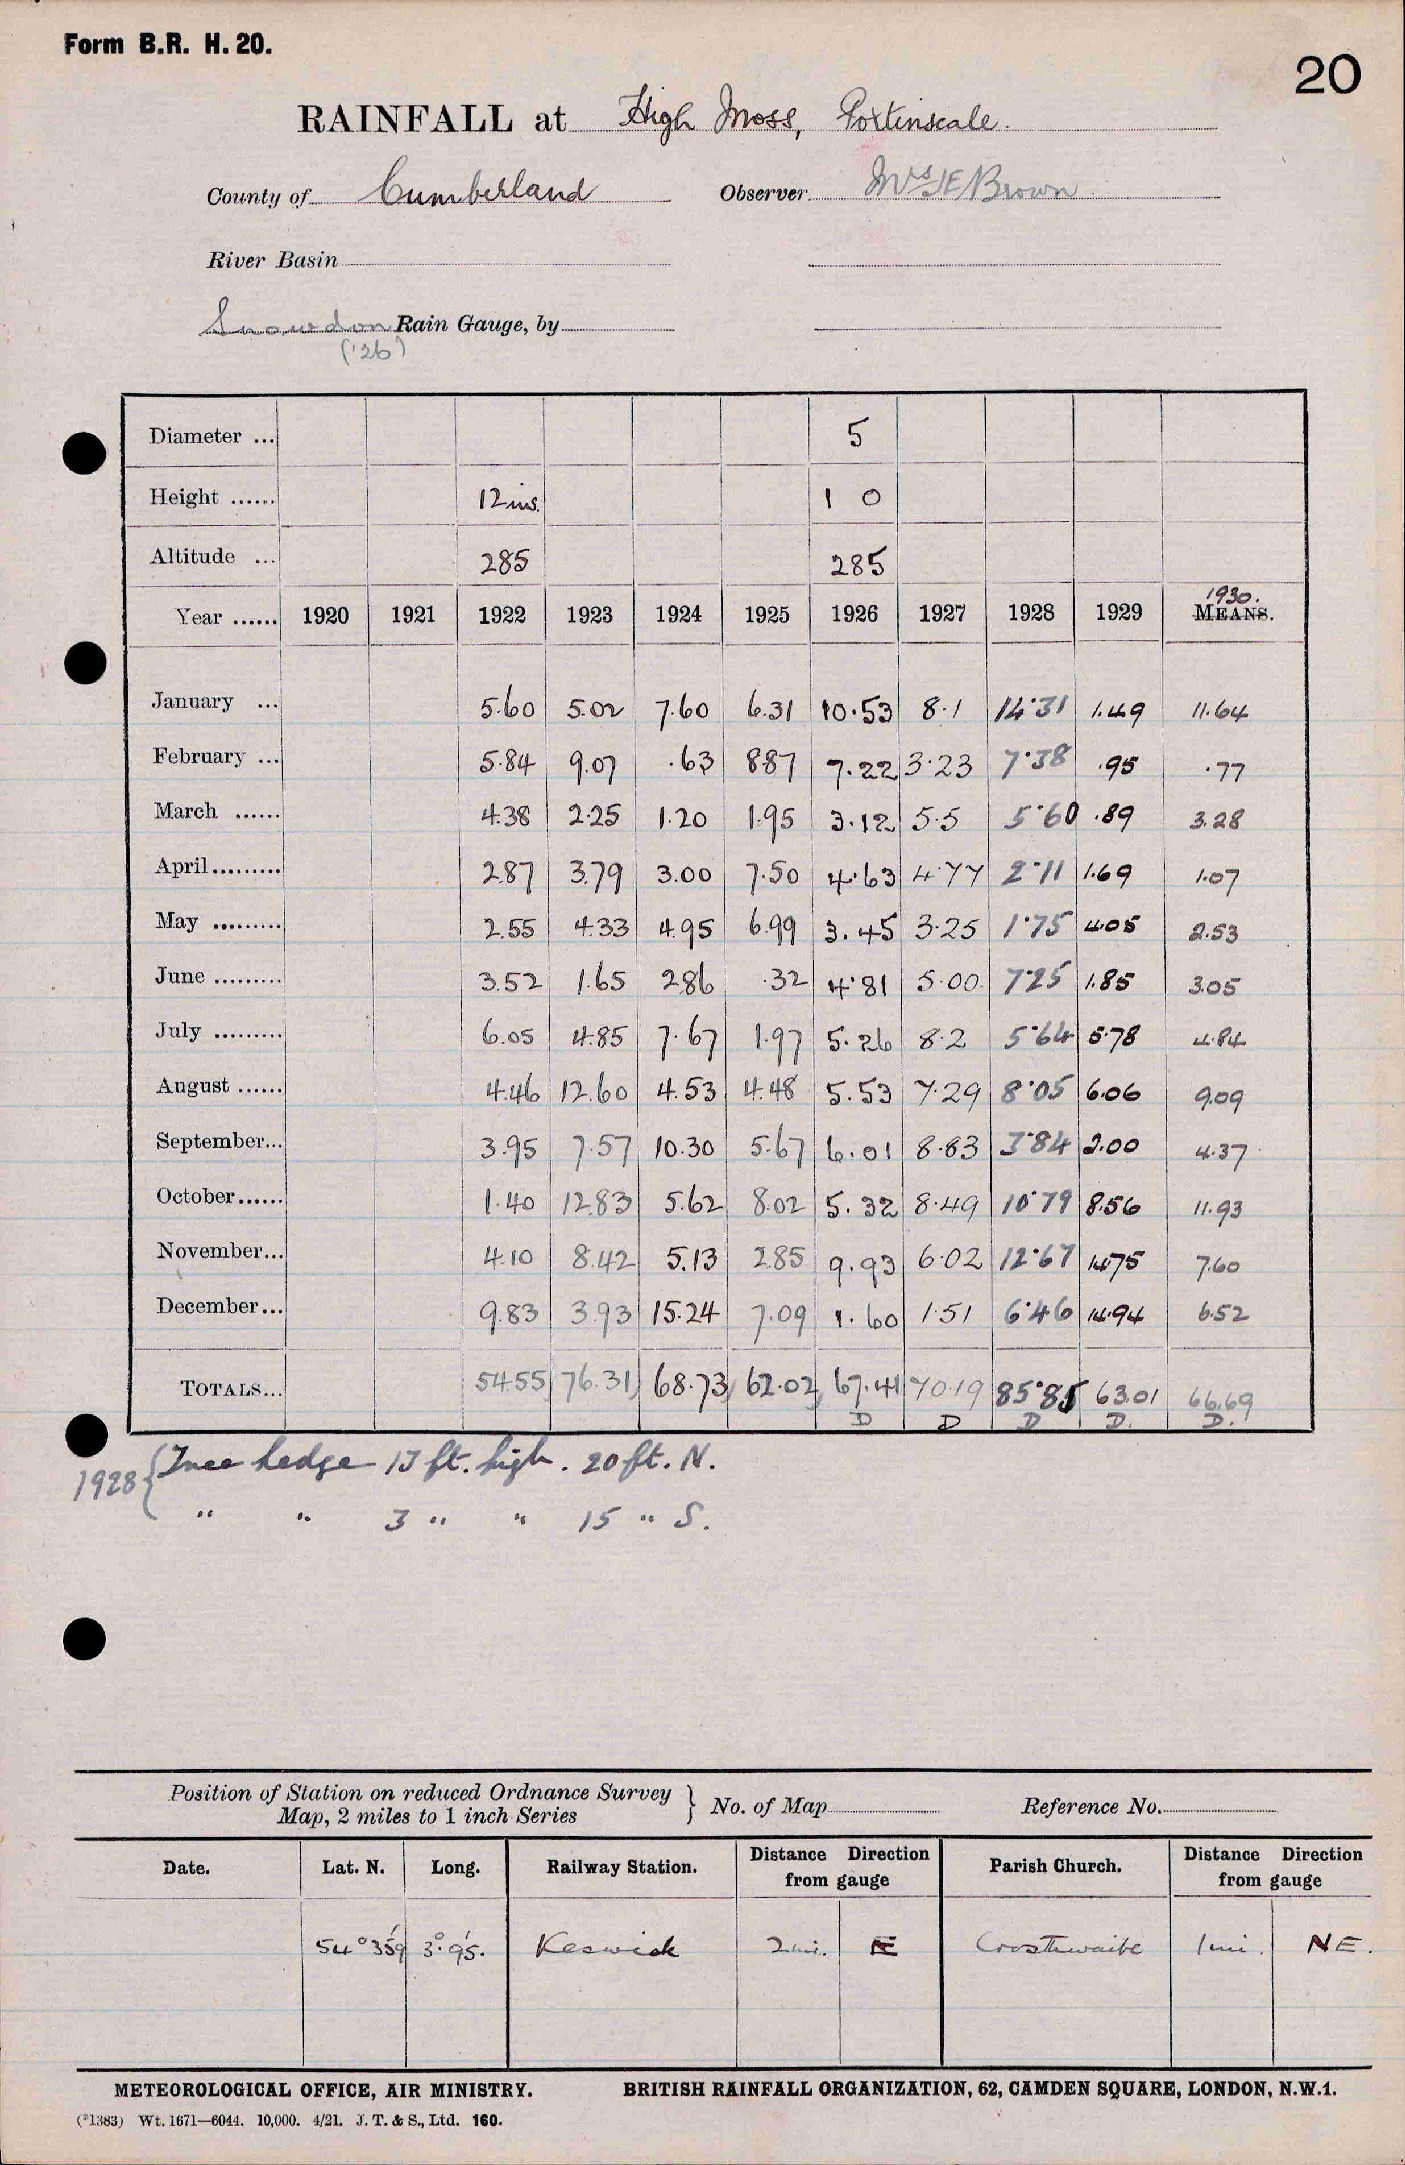 Form B.R. H. 20.
20
RAINFALL at High Moss, Portinscale.
County of Cumberland Observer Mrs J E Brown
River Basin
Snowdon Rain Gauge, by
('26)
Diameter ... 5
Height ...... 12 ins. 1 0
Altitude ... 285 285
1930.
Year ...... 1920 1921 1922 1923 1924 1925 1926 1927 1928 1929 MEANS.
January ... 5.60 5.02 7.60 6.31 10.53 8.1 14.31 1.49 11.64
February ... 5.84 9.07 .63 8.87 7.22 3.23 7.38 .95 .77
March ...... 4.38 2.25 1.20 1.95 3.12 5.5 5.60 .89 3.28
April......... 2.87 3.79 3.00 7.50 4.63 4.77 2.11 1.69 1.07
May ......... 2.55 4.33 4.95 6.99 3.45 3.25 1.75 4.05 2.53
June ......... 3.52 1.65 2.86 .32 4.81 5.00 7.25 1.85 3.05
July ......... 6.05 4.85 7.67 1.97 5.26 8.2 5.64 5.78 4.84
August ...... 4.46 12.60 4.53 4.48 5.53 7.29 8.05 6.06 9.09
September... 3.95 7.57 10.30 5.67 6.01 8.83 3.84 2.00 4.37
October...... 1.40 12.83 5.62 8.02 5.32 8.49 10.79 8.56 11.93
November... 4.10 8.42 5.13 2.85 9.93 6.02 12.67 14.75 7.60
December... 9.83 3.93 15.24 7.09 1.60 1.51 6.46 14.94 6.52
TOTALS... 54.55 76.31 68.73 62.02 67.41 70.19 85.85 63.01 66.69
D D D D. D.
1928 { Tree hedge ft. high. 20 ft. N.
" " 3 " " 15 " S.
Position of Station on reduced Ordnance Survey
Map, 2 miles to 1 inch Series } No. of Map Reference No.
Date. Lat. N. Long. Railway Station. Distance Direction from gauge Parish Church. Distance Direction from gauge
54° 35'9 3°.9'5. Keswick 2 mi. E Crosthwaite 1 mi. NE.
METEOROLOGICAL OFFICE, AIR MINISTRY. BRITISH RAINFALL ORGANIZATION, 62, CAMDEN SQUARE, LONDON, N.W.1.
(*1383) Wt. 1671—6044. 10,000. 4/21. J. T. & S., Ltd. 160.